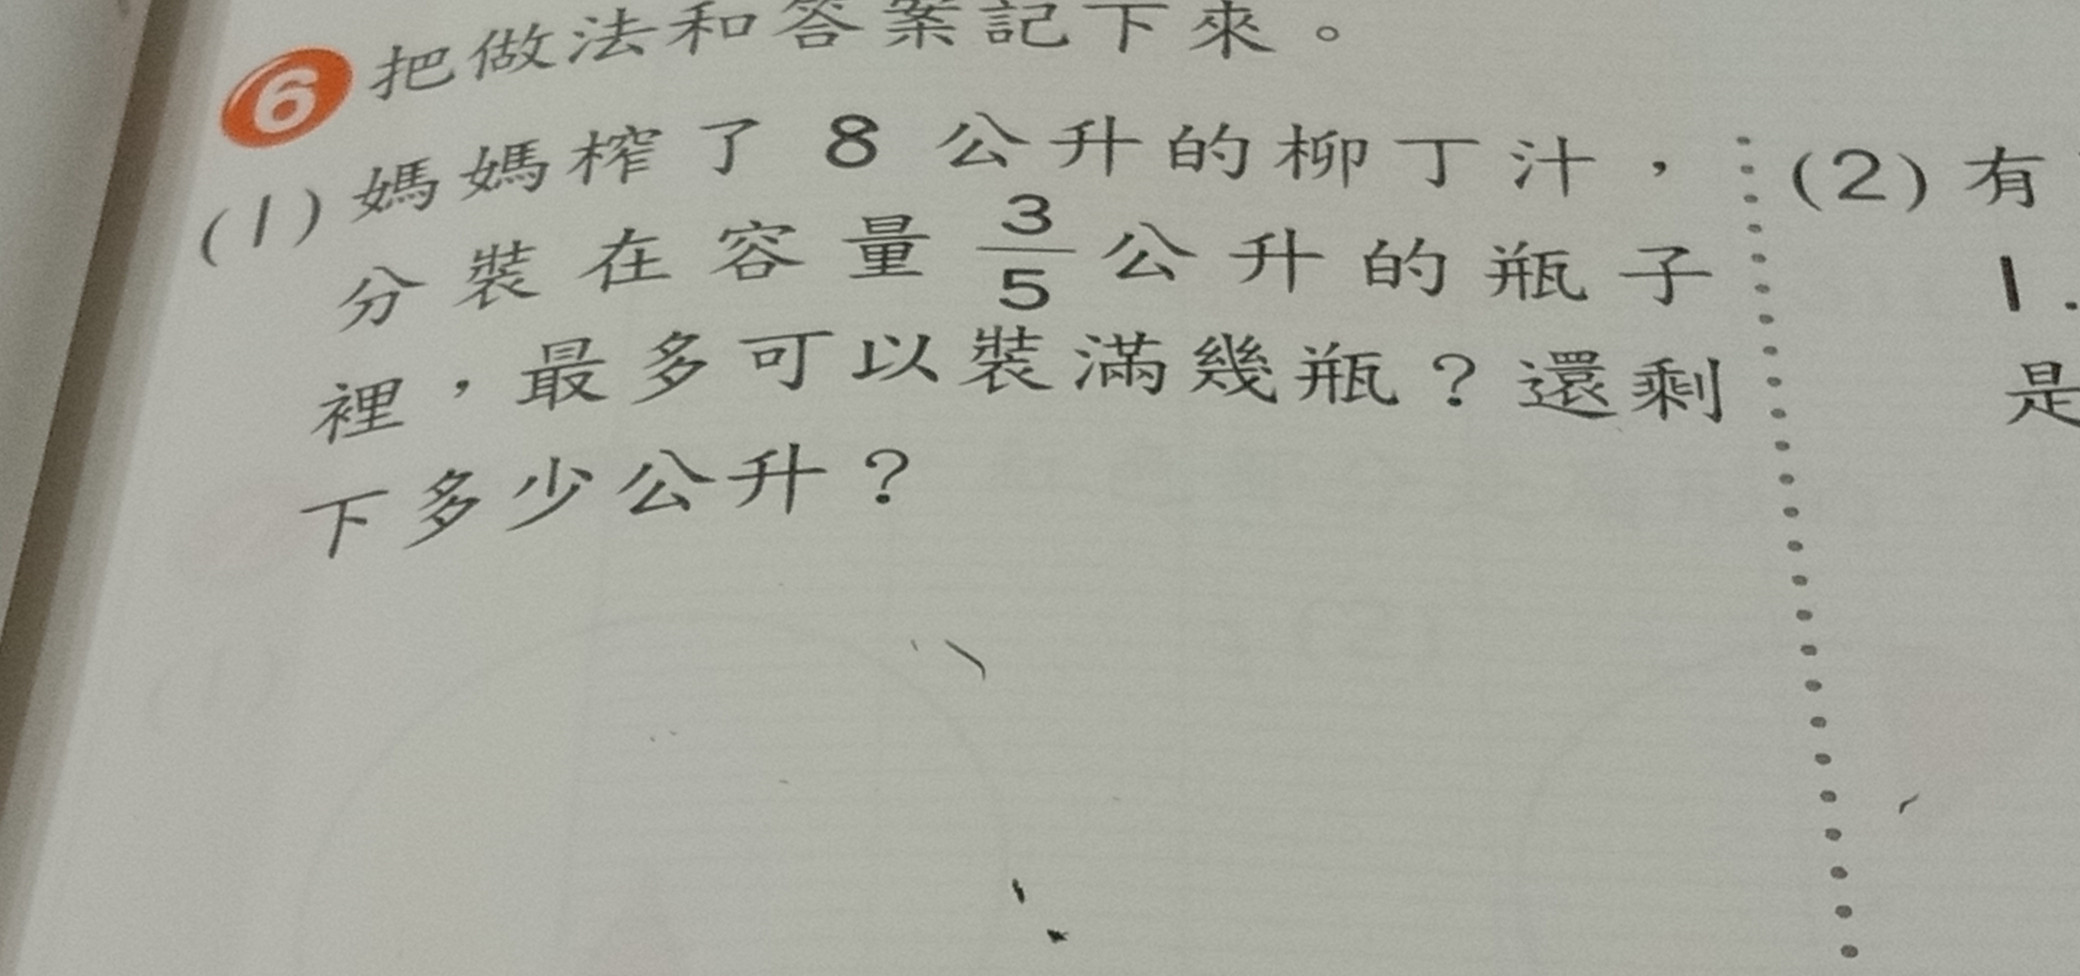 6 把做法和答案記下來。
(1) 媽媽榨了 8 公升的柳丁汁，
分裝在容量 3/5 公升的瓶子
裡，最多可以裝滿幾瓶？還剩
下多少公升？
(2) 有
1.
是